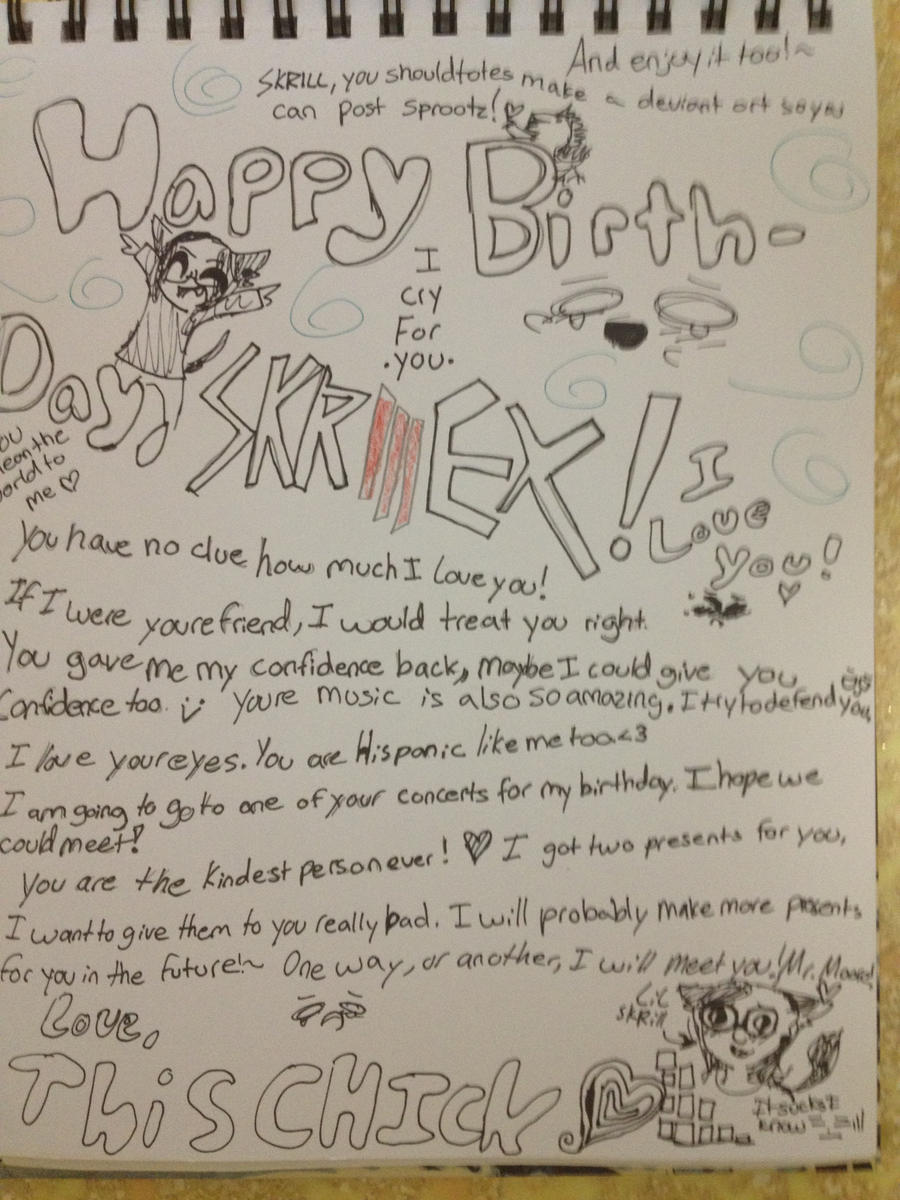 And enjoy it too!~
SKRILL, you shouldtotes make a deviant art so you
can post Sprootz!♡
Happy Birth-
I
cry
For
.you.
Day, SKRILLEX!
you
mean the
world to
me ♡
I
Love
you!
You have no clue how much I love you!
If I were youre friend, I would treat you right.
You gave me my confidence back, maybe I could give you
Confidence too. youre music is also so amazing. I try to defend you
I love your eyes. You are Hispanic like me too<3
I am going to go to one of your concerts for my birthday. I hope we
could meet!
You are the kindest person ever! ♡ I got two presents for you,
I want to give them to you really bad. I will probably make more presents
for you in the future!~ One way, or another, I will meet you! Mr. Moore!
Love,
Lil
skrill
This CHICK
It sucks I
know